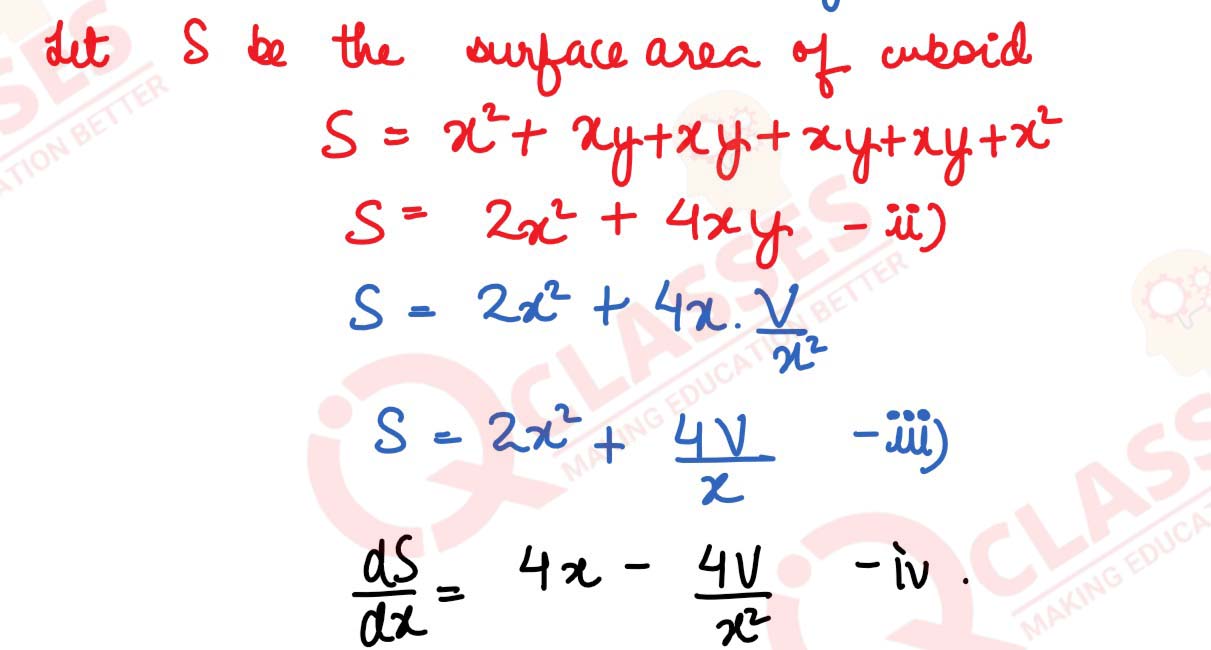 Let S be the surface area of cuboid
S = x² + xy + xy + xy + xy + x²
S = 2x² + 4xy - ii)
S = 2x² + 4x . V/x²
S = 2x² + 4V/x - iii)
dS/dx = 4x - 4V/x² - iv .
IQ CLASSES
MAKING EDUCATION BETTER